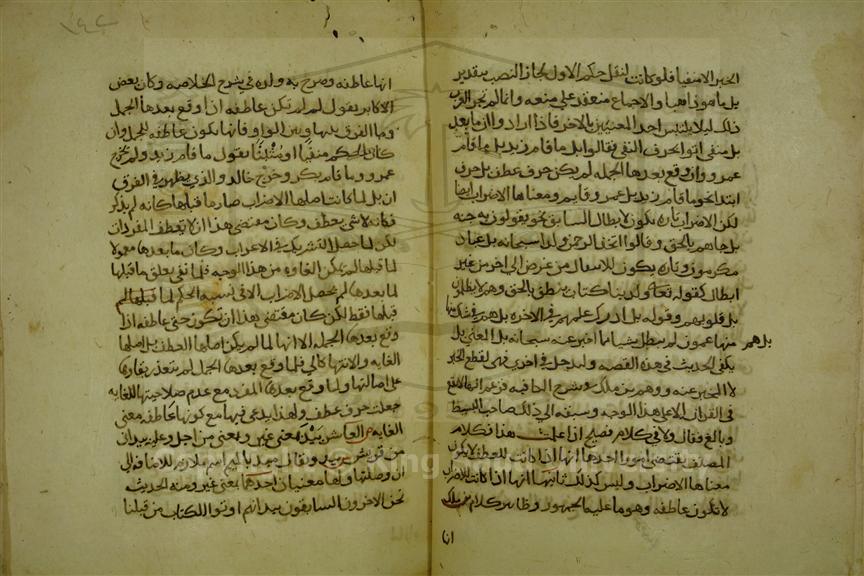 الخبر الامنفيا فلو كانت لنقل حكم الاول لجاز النصب بتقدير
بل ما هو ذاهبا والاجماع منعقد على منعه وانما لم تجز العرب
ذلك ليلا يلتبس احد المعنيين بالاخر فاذا ارادوا ان ما بعد
بل منفى اتوا بحرف النفي فقالوا بل ما قام زيد بل ما قام
عمرو وان وقع بعدها الجمله لم يكن حرف عطف بل حرف
ابتدا نحو ما قام زيد بل عمرو قايم ومعناها الاضراب ايضا
لكن الاضراب تارة يكون لابطال السابق نحو يقولون به جنه
بل جاهم بالحق وقالوا اتخذ الرحمن ولدا سبحانه بل عباد
مكرمون وتارة يكون للانتقال من غرض الى اخر من غير
ابطال كقوله تعالى ولدينا كتاب ينطق بالحق وهم لا يظلمون
بل قلوبهم وقوله بل ادرك علمهم في الاخره بل هم في شك منها
بل هم
منها عمون لم يبطل شيا مما اخبر عنه سبحانه بل المعنى بل
يكفي الحديث في هذه القصه وليدخل في اخرى فهي لقطع الخبر
لا المخبر عنه ووهم بن ملك في شرح الكافيه فزعم انها لا تقع
في القران الا على هذا الوجه وسبقه الى ذلك صاحب البسيط
وبالغ فقال ولا في كلام فصيح اذا علمت هذا فكلام
المصنف يقتضي امورا احدها انها اذا كانت للعطف لا يكون
معناها الاضراب وليس كذلك ثانيها انها اذا كانت للاضراب
لا تكون عاطفه وهو ما عليه الجمهور وظاهر كلام بن ملك
انها
انها عاطفه وصرح به ولده في شرح الخلاصه وكان بعض
الاكابر يقول لم لم تكن عاطفه اذا وقع بعدها الجمل
وما الفرق بينها وبين الواو فانها تكون عاطفه للجمل وان
كان الحكم منفيا او مثبتا يقول ما قام زيد ولم يخرج
عمرو وما قام بكر وخرج خالد والذي يظهر في الفرق
ان بل لما كانت اصلها الاضراب صار ما قبلها كانه لم يذكر
فكانه لا شي يعطف وكان مقتضى هذا ان لا تعطف المفردات
لكن لما حصل التشريك في الاعراب وكان ما بعدها معمولا
لما قبلها لم يكن الغاوه من هذا الوجه فلما نفى تعلق ما قبلها
لما بعدها لم يحصل الاضراب الا في نسبه الحكم لما قبلها لم
قبلها فقط لكن كان مقتضى هذا ان تكون حتى عاطفه اذا
وقع بعدها الجمله الا انها لما لم يكن اصلها العطف بل اصلها
الغايه والانتها كالى فلما وقع بعدها الجمل لم يتعذر بقاوها
على اصالتها ولما وقع بعدها المفرد مع عدم صلاحيتها للغايه
جعلت حرف عطف ولهذا يدعى فيها مع كونها عاطفه معنى
الغايه ص العاشر بيد بمعنى غير وبمعنى من اجل وعليه بيد اني
من قريش ش بيد ويقال ميد بالميم اسم ملازم للاضافه الى
ان وصلتها ولها معنيان احدهما بمعنى غير ومنه الحديث
نحن الاخرون السابقون بيد انهم اوتوا الكتاب من قبلنا